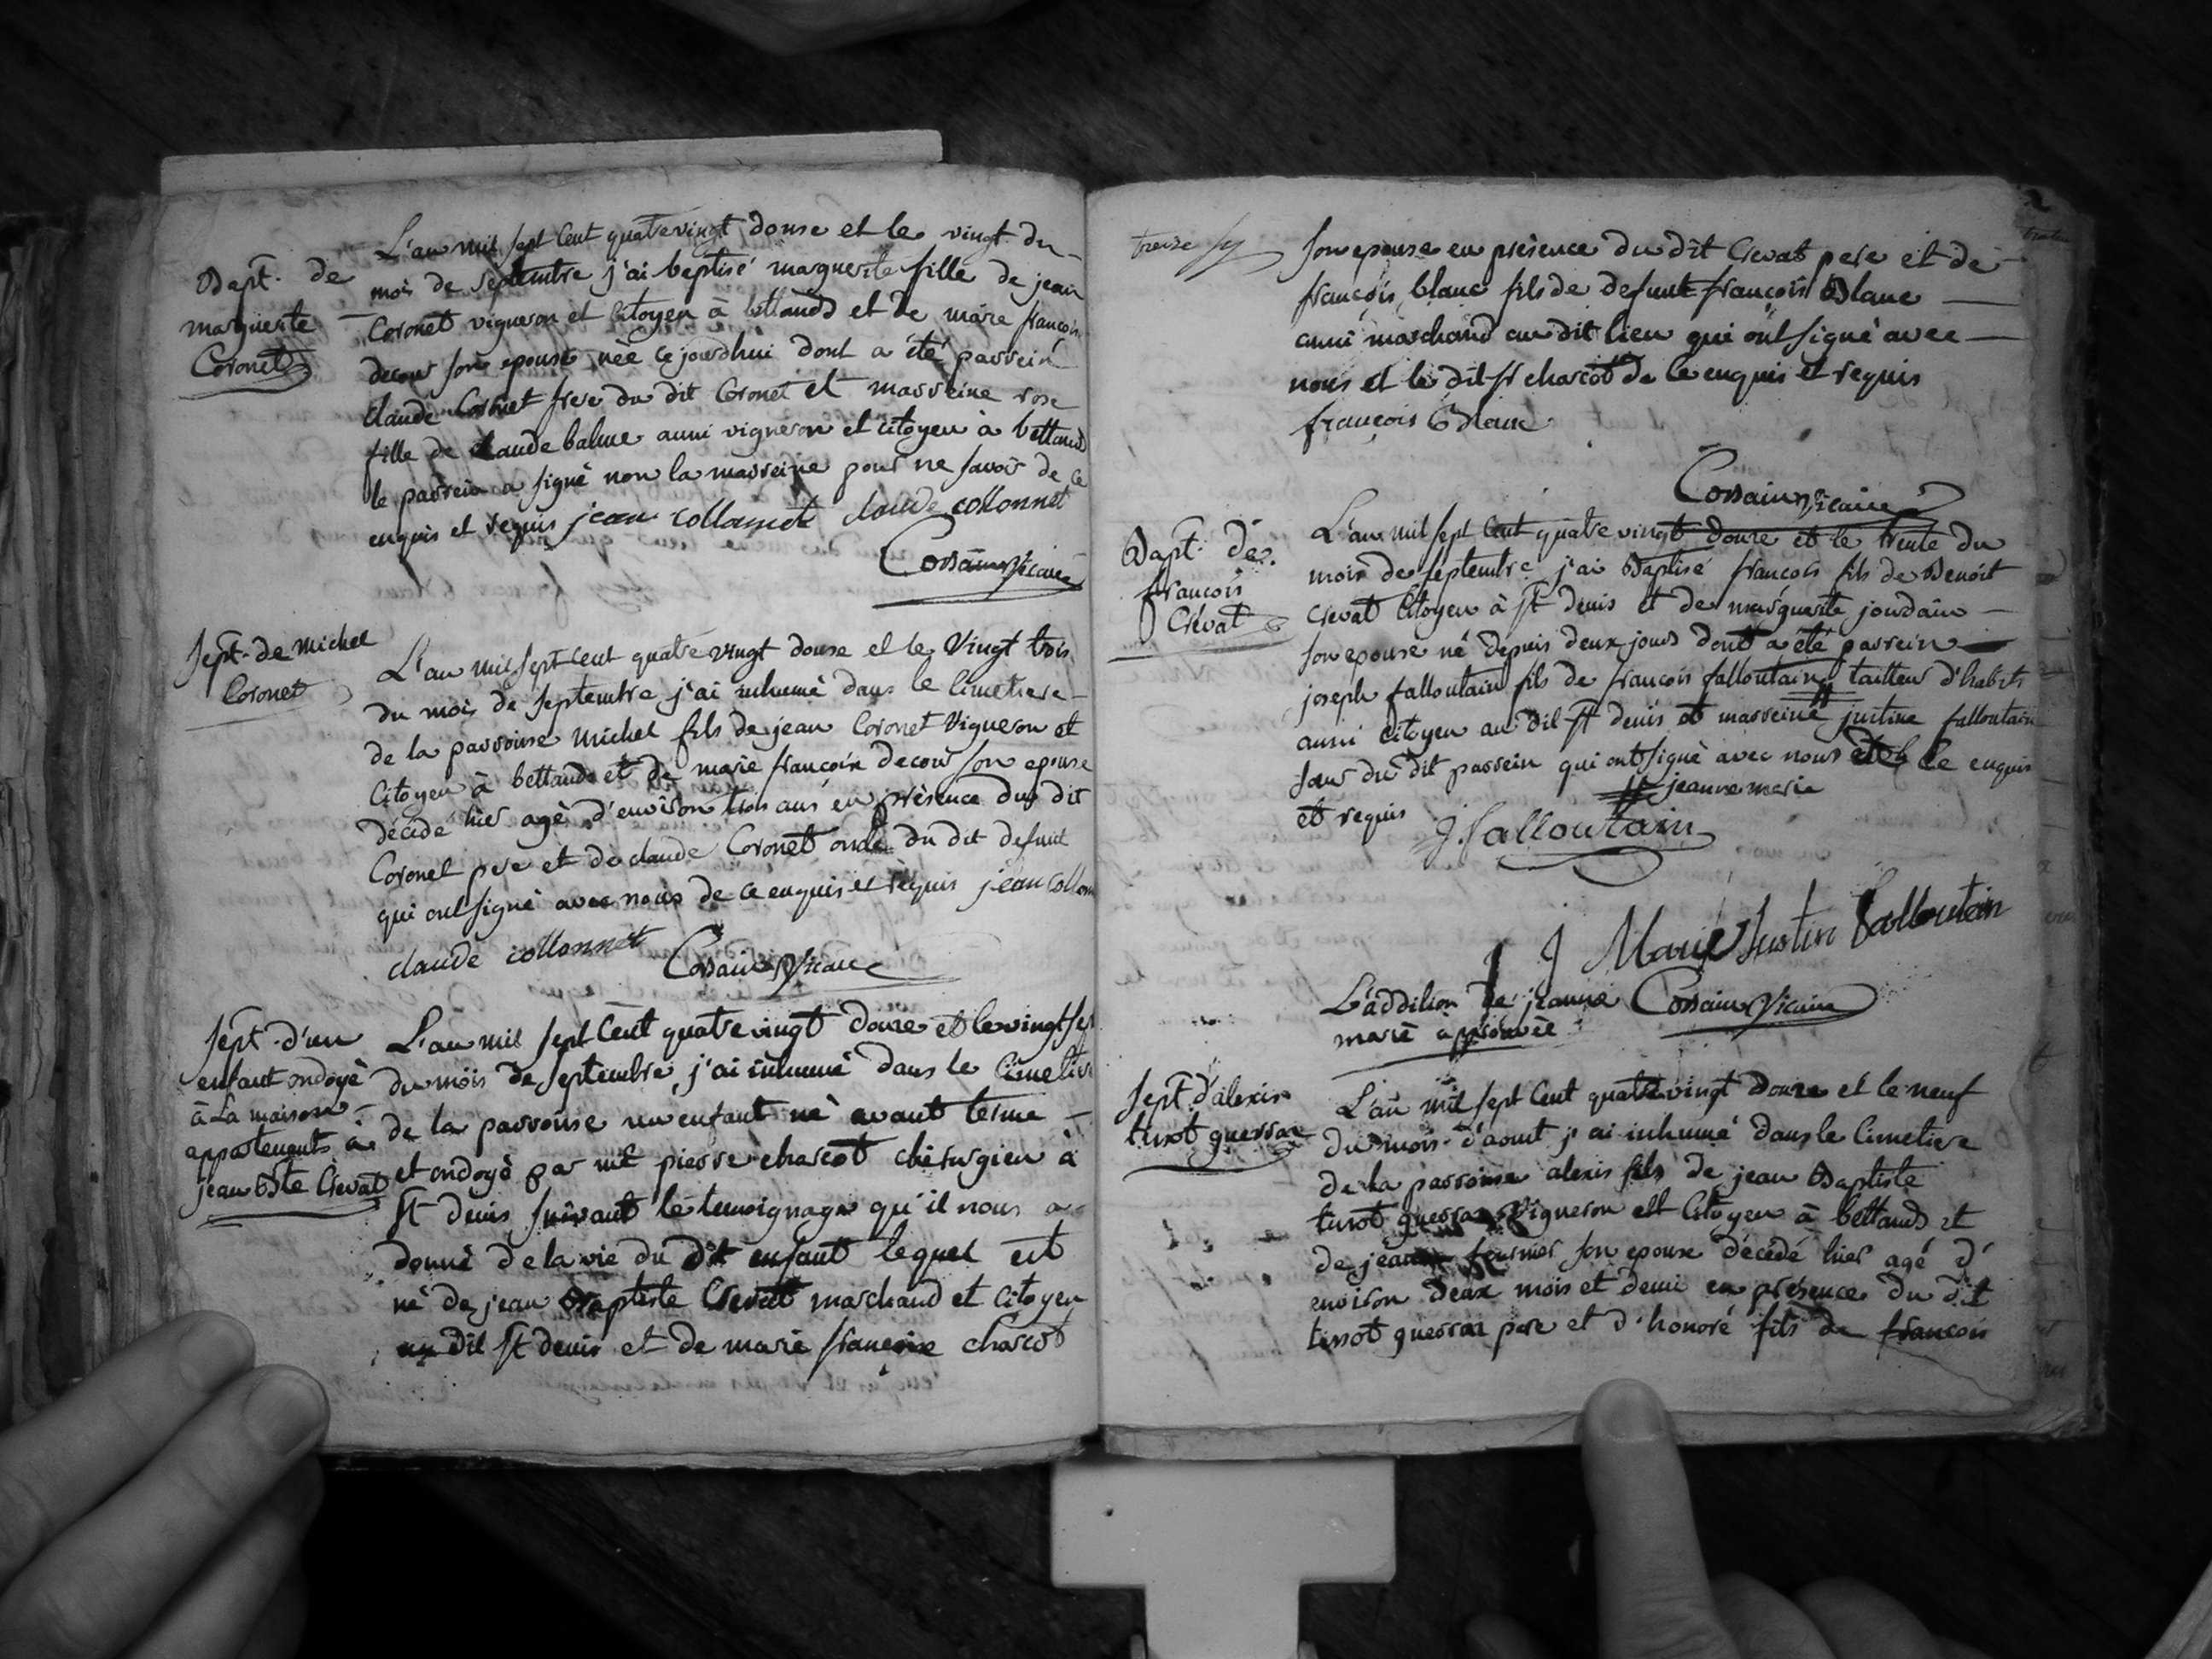 Bapt. de
marguerite
Coronet
L'an mil sept Cent quatrevingt douse et le vingt du
mois de septembre j'ai baptisé marguerite fille de jean
Coronet vigneron et Citoyen à bettands et de marie françois
decour son epouse née ce jourdhui dont a été parrein
Claude Coronet frere du dit Coronet et marreine rose
fille de Claude balme aussi vigneron et citoyen à bettand
le parrein a signé non la marreine pour ne savoir de ce
enquis et requis jean collonnet claude collonnet
Cossain vicaire
sept. de michel
Coronet
L'an mil sept cent quatre vingt douse et le vingt trois
du mois de septembre j'ai inhumé dans le Cimetiere
de la parroisse michel fils de jean Coronet vigneron et
Citoyen à bettands et de marie françoise decour son epouse
décédé hier agé d'environ trois ans en présence du dit
Coronet pere et de claude Coronet oncle du dit defunt
qui ont signé avec nous de ce enquis et requis jean collonn
claude collonnet Cossain vicaire
sept. d'un
enfant ondoyé
à La maison
appartenants à
jean Bte Crevat
L'an mil sept Cent quatre vingt douze et le vingt sept
du mois de septembre j'ai inhumé dans le Cimetiere
de la parroisse un enfant né avant terme
et ondoyé par me pierre charcot chirurgien à
st denis suivant le temoignage qu'il nous a
donné de la vie du dit enfant lequel est
né de jean Baptiste Crevat marchand et Citoyen
au dit st denis et de marie françoise charcot
2
treize
son epouse en présence du dit Crevat pere et de
françois blanc fils de defunt françois Blanc
aussi marchand au dit lieu qui ont signé avec
nous et le dit sr charcot de ce enquis et requis
françois Blanc
Cossain vicaire
Bapt. de
francois
Crevat
L'an mil sept Cent quatre vingt douze et le trente du
mois de septembre j'ai Baptisé francois fils de Benoit
Crevat Citoyen à st denis et de marguerite jourdain
son epouse né depuis deux jours dont a été parrein
joseph falloutain fils de francois falloutain tailleur d'habits
aussi Citoyen au dit st denis et marreine # justine falloutain
sœur du dit parrein qui ont signé avec nous de ce enquis
# jeanne marie
et requis J. falloutain
J Marie Justin falloutain
L'addition de jeanne
marie approuvée
Cossain vicaire
sept. d'alexis
tissot guerraz
L'an mil sept Cent quatre vingt douze et le neuf
du mois d'aout j'ai inhumé dans le Cimetiere
de la parroisse alexis fils de jean Baptiste
tissot guerraz vigneron et Citoyen à bettands et
de jeanne fournier son epouse décédé hier agé d'
environ deux mois et demi en présence du dit
tissot guerraz pere et d'honoré fils de francois